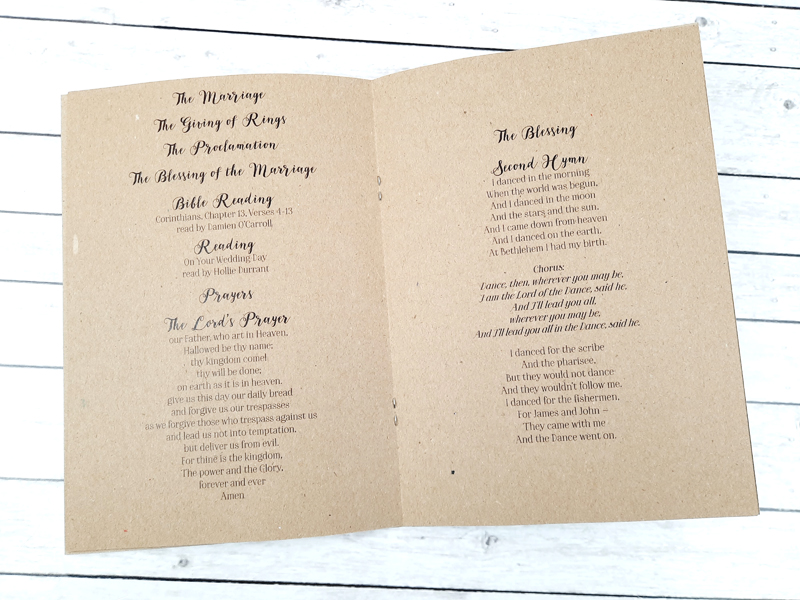 The Marriage
The Giving of Rings
The Proclamation
The Blessing of the Marriage
Bible Reading
Corinthians, Chapter 13, Verses 4-13
read by Damien O'Carroll
Reading
On Your Wedding Day
read by Hollie Durrant
Prayers
The Lord's Prayer
our Father, who art in Heaven,
Hallowed be thy name;
thy kingdom come;
thy will be done;
on earth as it is in heaven.
give us this day our daily bread
and forgive us our trespasses
as we forgive those who trespass against us
and lead us not into temptation,
but deliver us from evil.
For thine is the kingdom,
The power and the Glory,
forever and ever
Amen
The Blessing
Second Hymn
I danced in the morning
When the world was begun,
And I danced in the moon
And the stars and the sun.
And I came down from heaven
And I danced on the earth.
At Bethlehem I had my birth.
Chorus:
Dance, then, wherever you may be,
I am the Lord of the Dance, said he.
And I'll lead you all,
wherever you may be,
And I'll lead you all in the Dance, said he.
I danced for the scribe
And the pharisee,
But they would not dance
And they wouldn't follow me.
I danced for the fishermen,
For James and John –
They came with me
And the Dance went on.